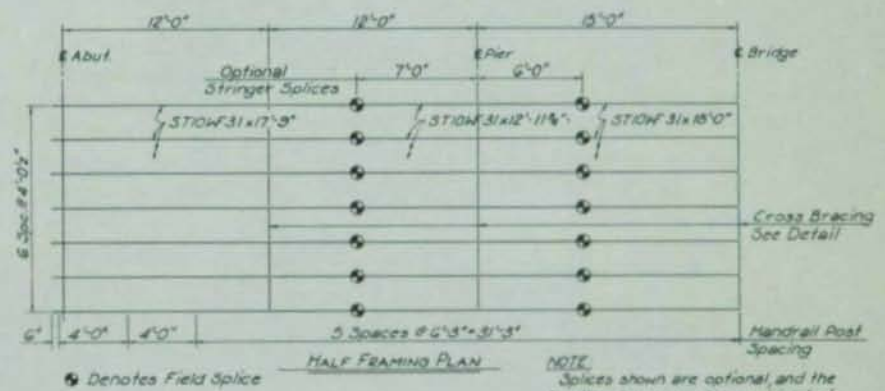 12'-0" 12'-0" 15'-0"
℄ Abut. ℄ Pier ℄ Bridge
Optional
Stringer Splices
7'-0" 6'-0"
ST10WF31x17'-9" ST10WF31x12'-11⅝" ST10WF31x18'-0"
6 Spc @ 4'-0½"
Cross Bracing
See Detail
6" 4'-0" 4'-0" 5 Spaces @ 6'-3"=31'-3" Handrail Post
Spacing
HALF FRAMING PLAN
NOTE:
Denotes Field Splice
Splices shown are optional, and the